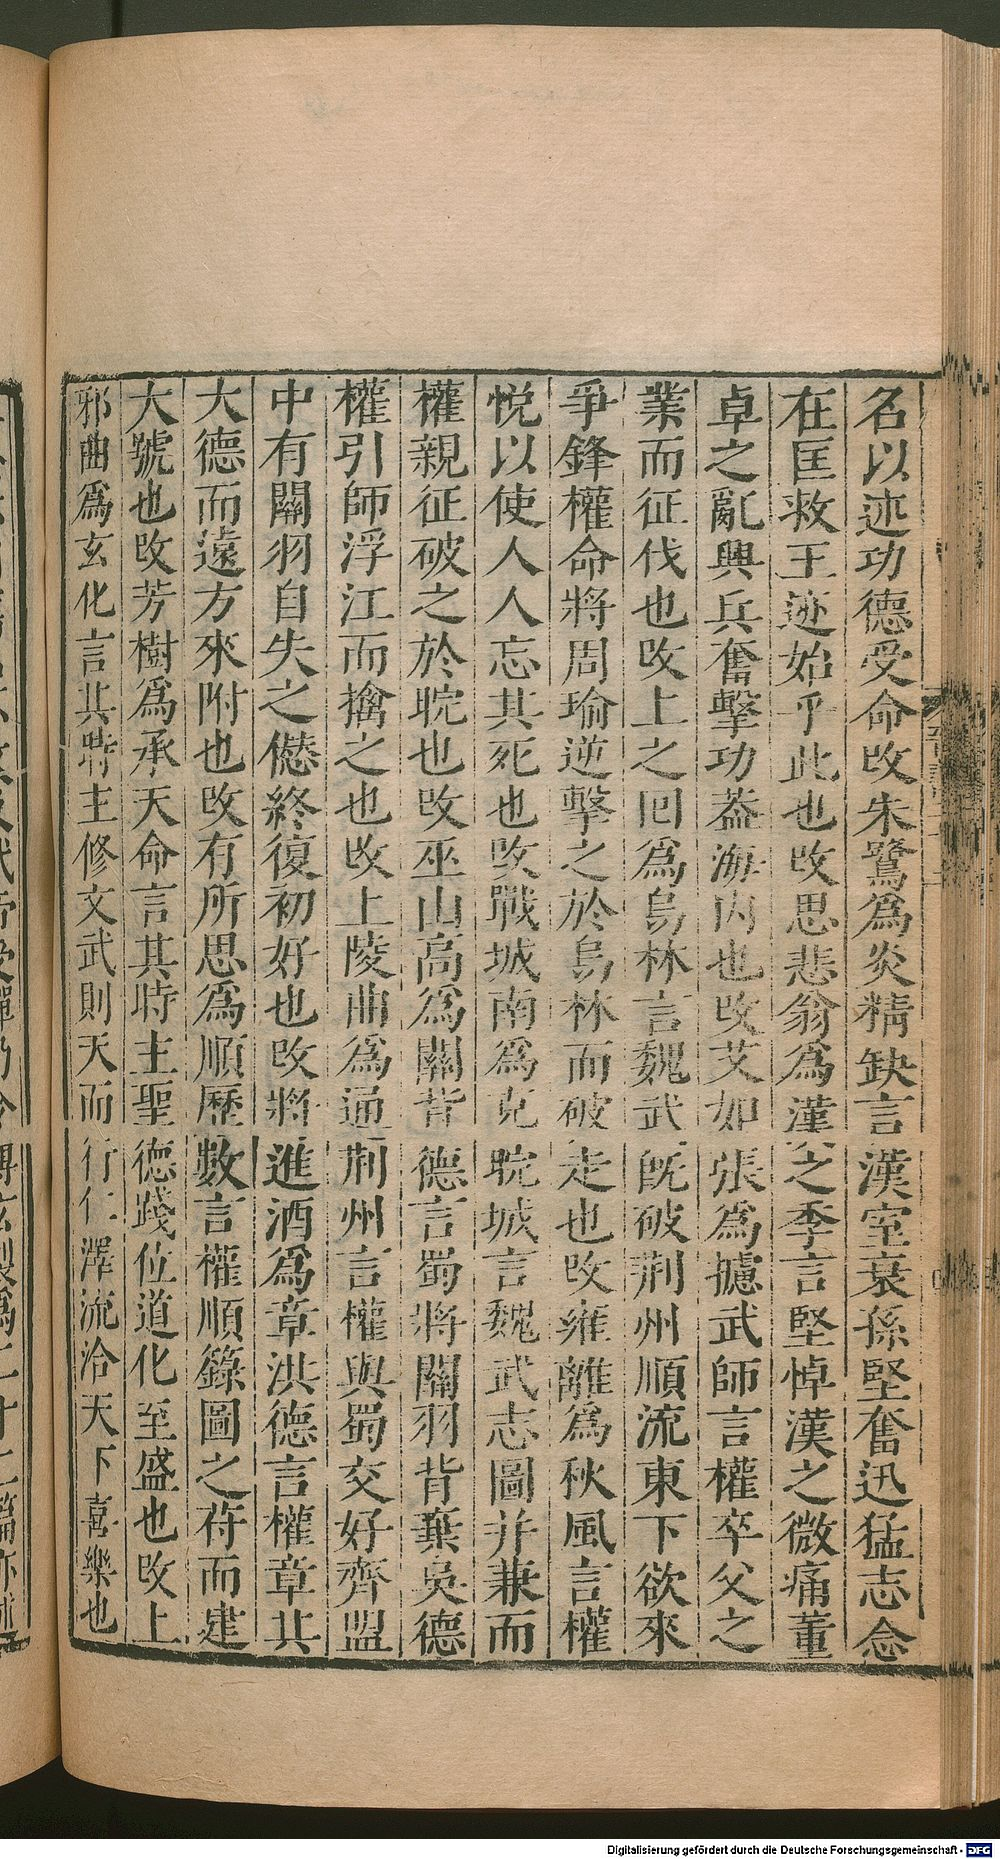 名以述功德受命改朱鷺爲炎精缺言漢室衰孫堅奮迅猛志念
在匡救王迹始乎此也改思悲翁爲漢之季言堅悼漢之微痛董
卓之亂興兵奮擊功蓋海內也改艾如張爲攄武師言權卒父之
業而征伐也改上之回爲烏林言魏武既破荆州順流東下欲來
爭鋒權命將周瑜逆擊之於烏林而破走也改雍離爲秋風言權
悅以使人人忘其死也改戰城南爲克晥城言魏武志圖并兼而
權親征破之於晥也改巫山高爲關背德言蜀將關羽背棄吳德
權引師浮江而擒之也改上陵曲爲通荆州言權與蜀交好齊盟
中有關羽自失之僽終復初好也改將進酒爲章洪德言權章其
大德而遠方來附也改有所思爲順曆數言權順籙圖之苻而建
大號也改芳樹爲承天命言其時主聖德踐位道化至盛也改上
邪曲爲玄化言其時主修文武則天而行仁澤流洽天下喜樂也
Digitalisierung gefördert durch die Deutsche Forschungsgemeinschaft - DFG